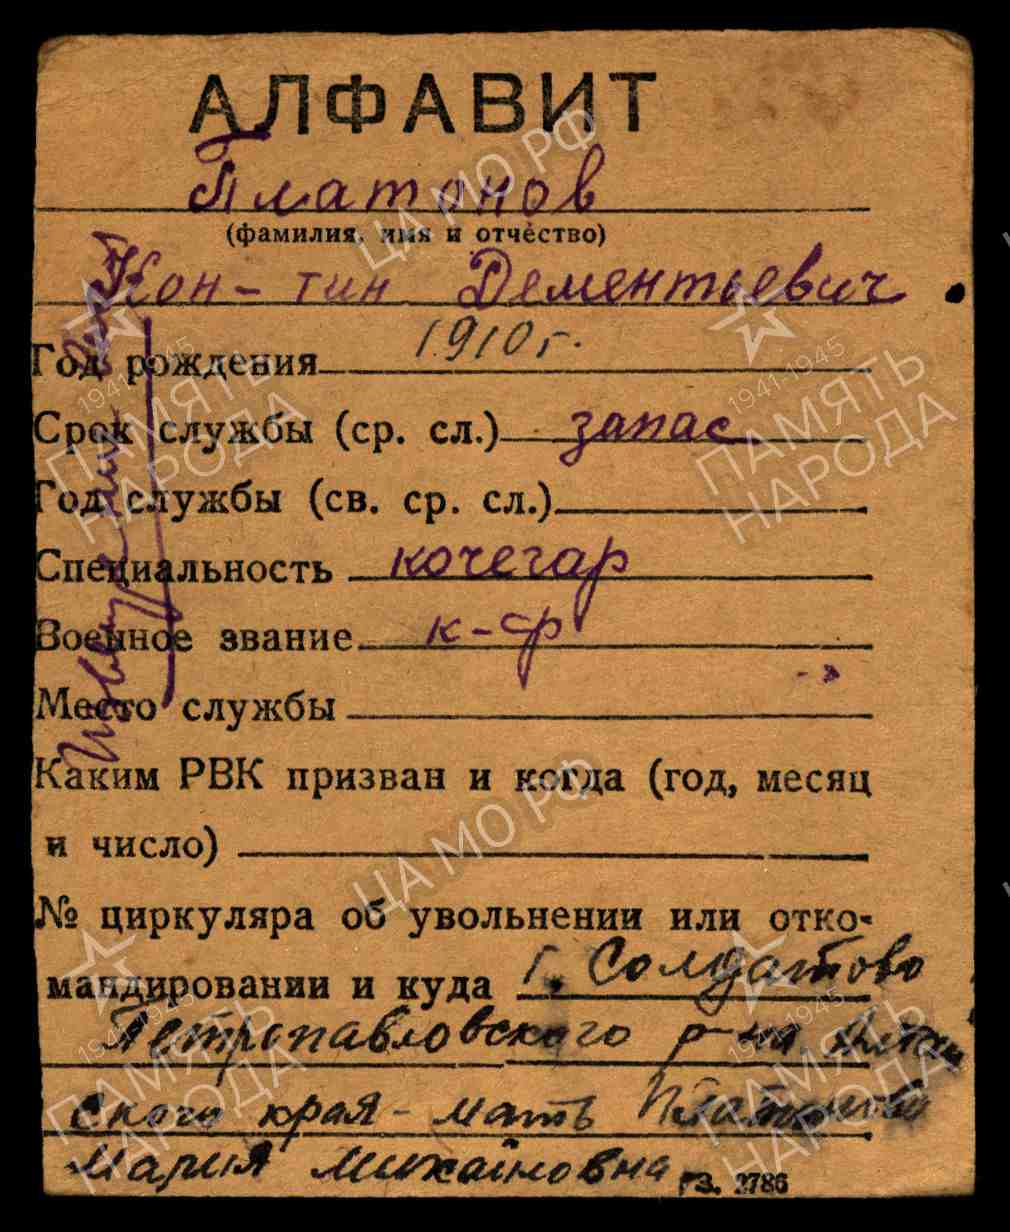 АЛФАВИТ
Платонов
(фамилия, имя и отчество)
Кон-тин Дементьевич
Год рождения 1910 г.
Срок службы (ср. сл.) запас
Год службы (св. ср. сл.)
Специальность кочегар
Военное звание к-ф
Место службы
Каким РВК призван и когда (год, месяц
и число)
№ циркуляра об увольнении или отко-
мандировании и куда г. Солдатово
Петропавловского р-на Алтай
ского края - мать Платонова
Мария Михайловна
ГЗ. 2786
ЦА МО РФ
1941-1945
ПАМЯТЬ
НАРОДА
1941-1945
ПАМЯТЬ
НАРОДА
ЦА МО РФ
1941-1945
ПАМЯТЬ
НАРОДА
1941-1945
ПАМЯТЬ
НАРОДА